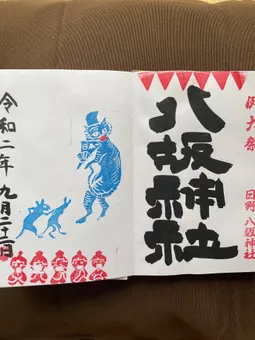 例大祭
八坂神社
日野 八坂神社
令和二年 九月二十二日